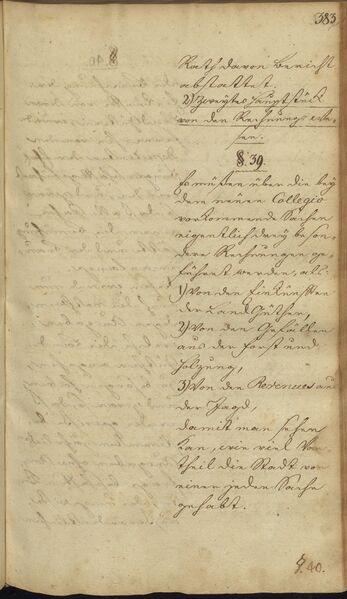 383
Rath davon Bericht
abstattet.
2) Zweytes Hauptstück
von den Rechnungs
§. 39.
Es müssen über die bey
dem neuen Collegio
vorkommend Sachen
eigentlich drey beson-
dere Rechnungen ge-
führet werden, als
1) Von den Einkünfften
der Land Güther,
2) Von den Gefällen
aus der Forst und
Holzung,
3) Von den Revenues aus
der Jagd,
damit man sehen
kan, wie viel Vor-
theil die Stadt von
einer jeden Sache
gehabt.
§. 40.